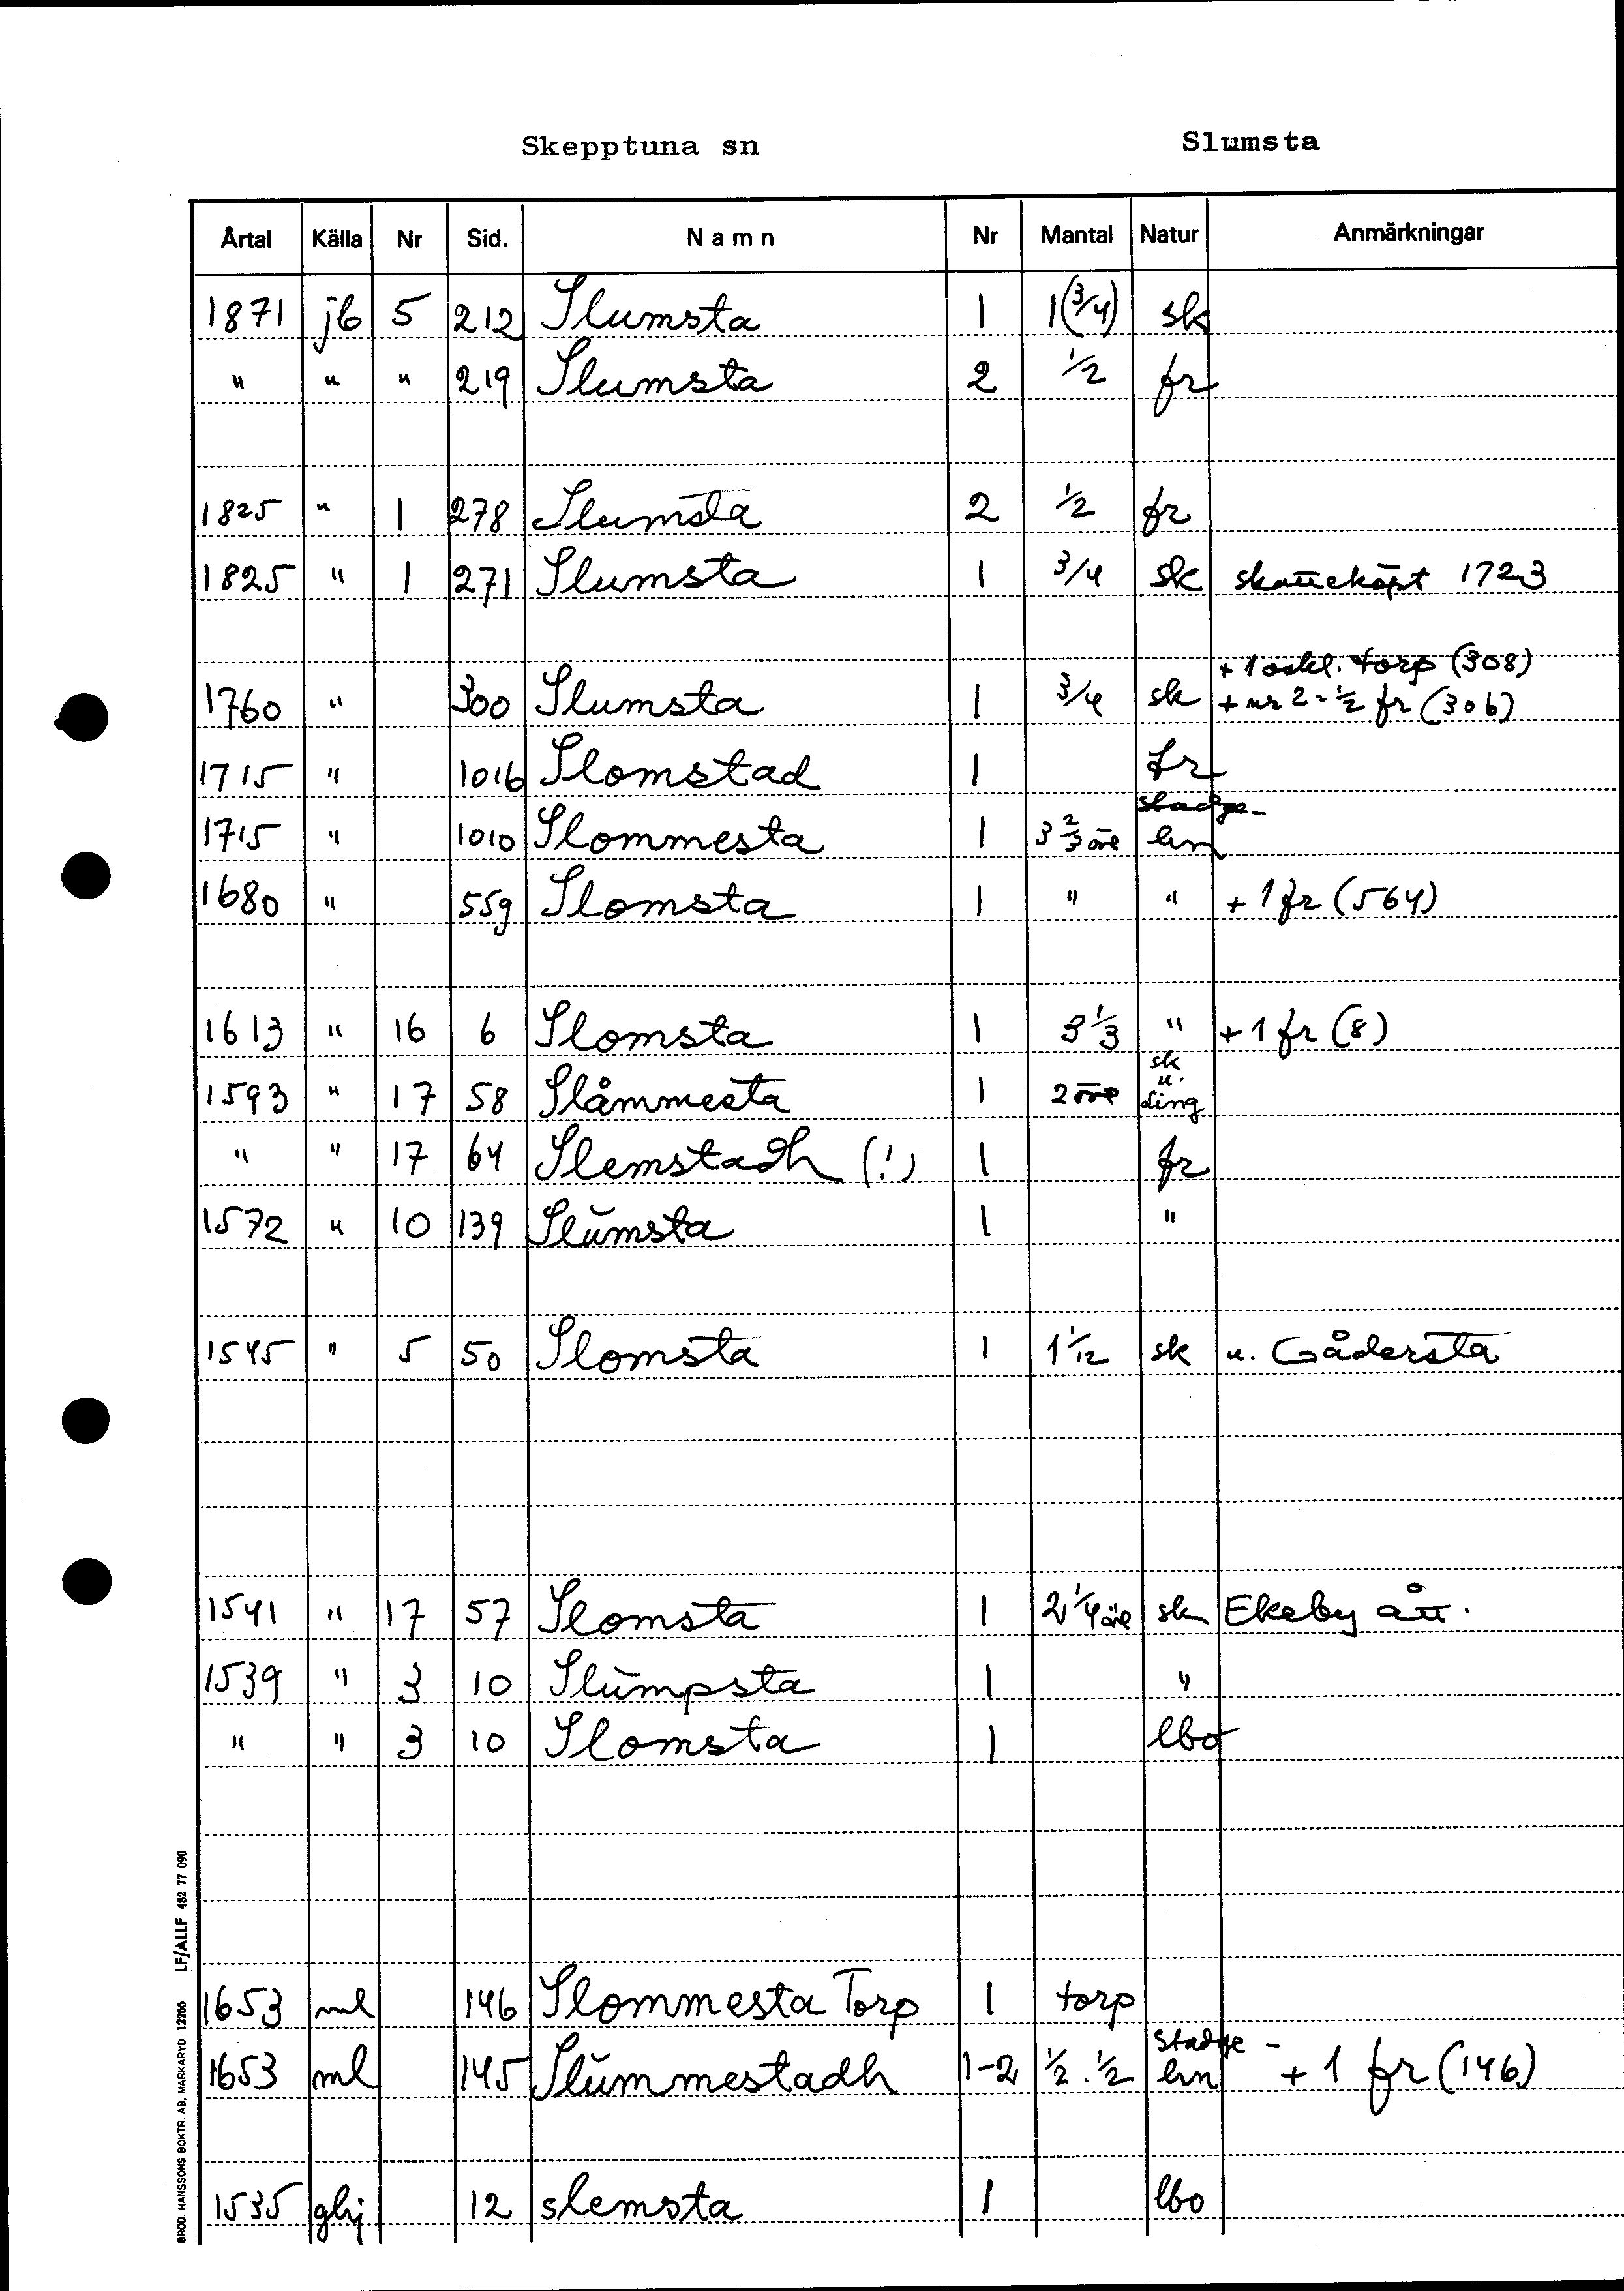 Skepptuna sn Slumsta
Årtal Källa Nr Sid. Namn Nr Mantal Natur Anmärkningar
1871 jb 5 212 Slumsta 1 1(3/4) sk
" " " 219 Slumsta 2 1/2 fr
1825 " 1 278 Slumsta 2 1/2 fr
1825 " 1 271 Slumsta 1 3/4 sk skatteköpt 1723
+ 1 oskl. torp (308)
1760 " 300 Slumsta 1 3/4 sk + nr 2 = 1/2 fr (306)
1715 " 1016 Slomstad 1 fr
stadge-
1715 " 1010 Slommesta 1 3 2/3 öre hn
1680 " 559 Slomsta 1 " " + 1 fr (564)
1613 " 16 6 Slomsta 1 3 1/3 " + 1 fr (8)
sk
u.
1593 " 17 58 Slåmmesta 1 2 öre Ling
" " 17 64 Slemstadh (!) 1 fr
1572 " 10 139 Slŭmsta 1 "
1545 " 5 50 Slomsta 1 1 1/12 sk u. Gådersta
1541 " 17 57 Slomsta 1 2 1/4 öre sk Ekeby ått.
1539 " 3 10 Slŭmpsta 1 "
" " 3 10 Slomsta 1 lbo
1653 ml 146 Slommesta Torp 1 torp
stadge-
1653 ml 145 Slŭmmestadh 1-2 1/2. 1/2 hn + 1 fr (146)
1535 ghj 12 slemsta 1 lbo
BROD. HANSSONS BOKTR. AB, MARKARYD 12266 LF/ALLF 482 77 090